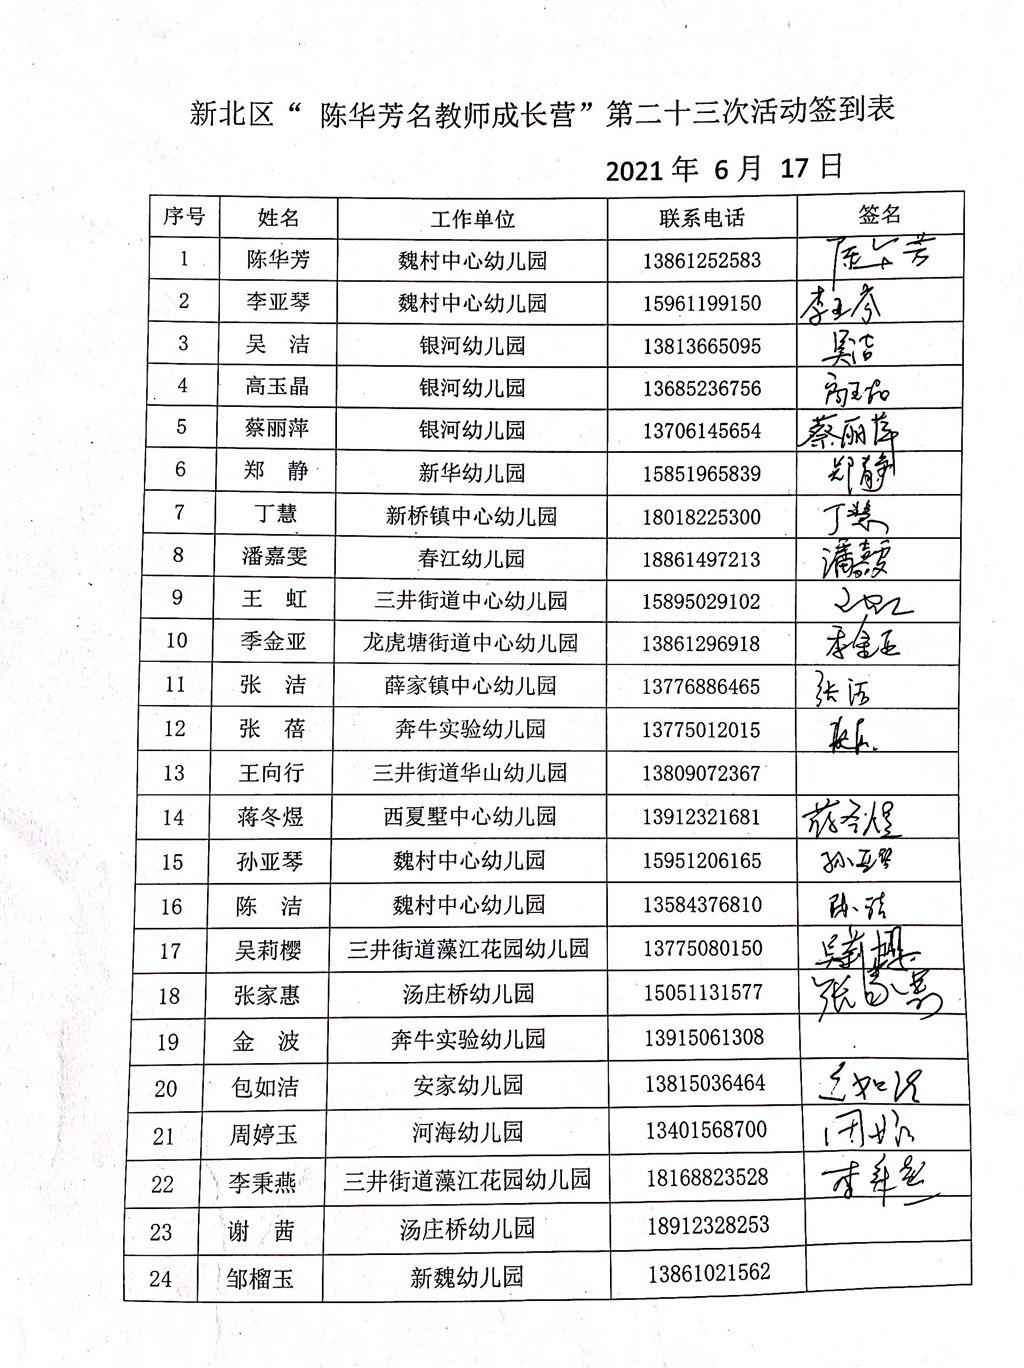 新北区“ 陈华芳名教师成长营”第二十三次活动签到表
2021 年 6 月 17 日
序号 姓名 工作单位 联系电话 签名
1 陈华芳 魏村中心幼儿园 13861252583 陈华芳
2 李亚琴 魏村中心幼儿园 15961199150 李亚琴
3 吴 洁 银河幼儿园 13813665095 吴洁
4 高玉晶 银河幼儿园 13685236756 高玉晶
5 蔡丽萍 银河幼儿园 13706145654 蔡丽萍
6 郑 静 新华幼儿园 15851965839 郑静
7 丁慧 新桥镇中心幼儿园 18018225300 丁慧
8 潘嘉雯 春江幼儿园 18861497213 潘嘉雯
9 王 虹 三井街道中心幼儿园 15895029102 王虹
10 季金亚 龙虎塘街道中心幼儿园 13861296918 季金亚
11 张 洁 薛家镇中心幼儿园 13776886465 张洁
12 张 蓓 奔牛实验幼儿园 13775012015
13 王向行 三井街道华山幼儿园 13809072367
14 蒋冬煜 西夏墅中心幼儿园 13912321681 蒋冬煜
15 孙亚琴 魏村中心幼儿园 15951206165 孙亚琴
16 陈 洁 魏村中心幼儿园 13584376810 陈洁
17 吴莉樱 三井街道藻江花园幼儿园 13775080150 吴莉樱
18 张家惠 汤庄桥幼儿园 15051131577 张家惠
19 金 波 奔牛实验幼儿园 13915061308
20 包如洁 安家幼儿园 13815036464 包如洁
21 周婷玉 河海幼儿园 13401568700
22 李秉燕 三井街道藻江花园幼儿园 18168823528 李秉燕
23 谢 茜 汤庄桥幼儿园 18912328253
24 邹榴玉 新魏幼儿园 13861021562